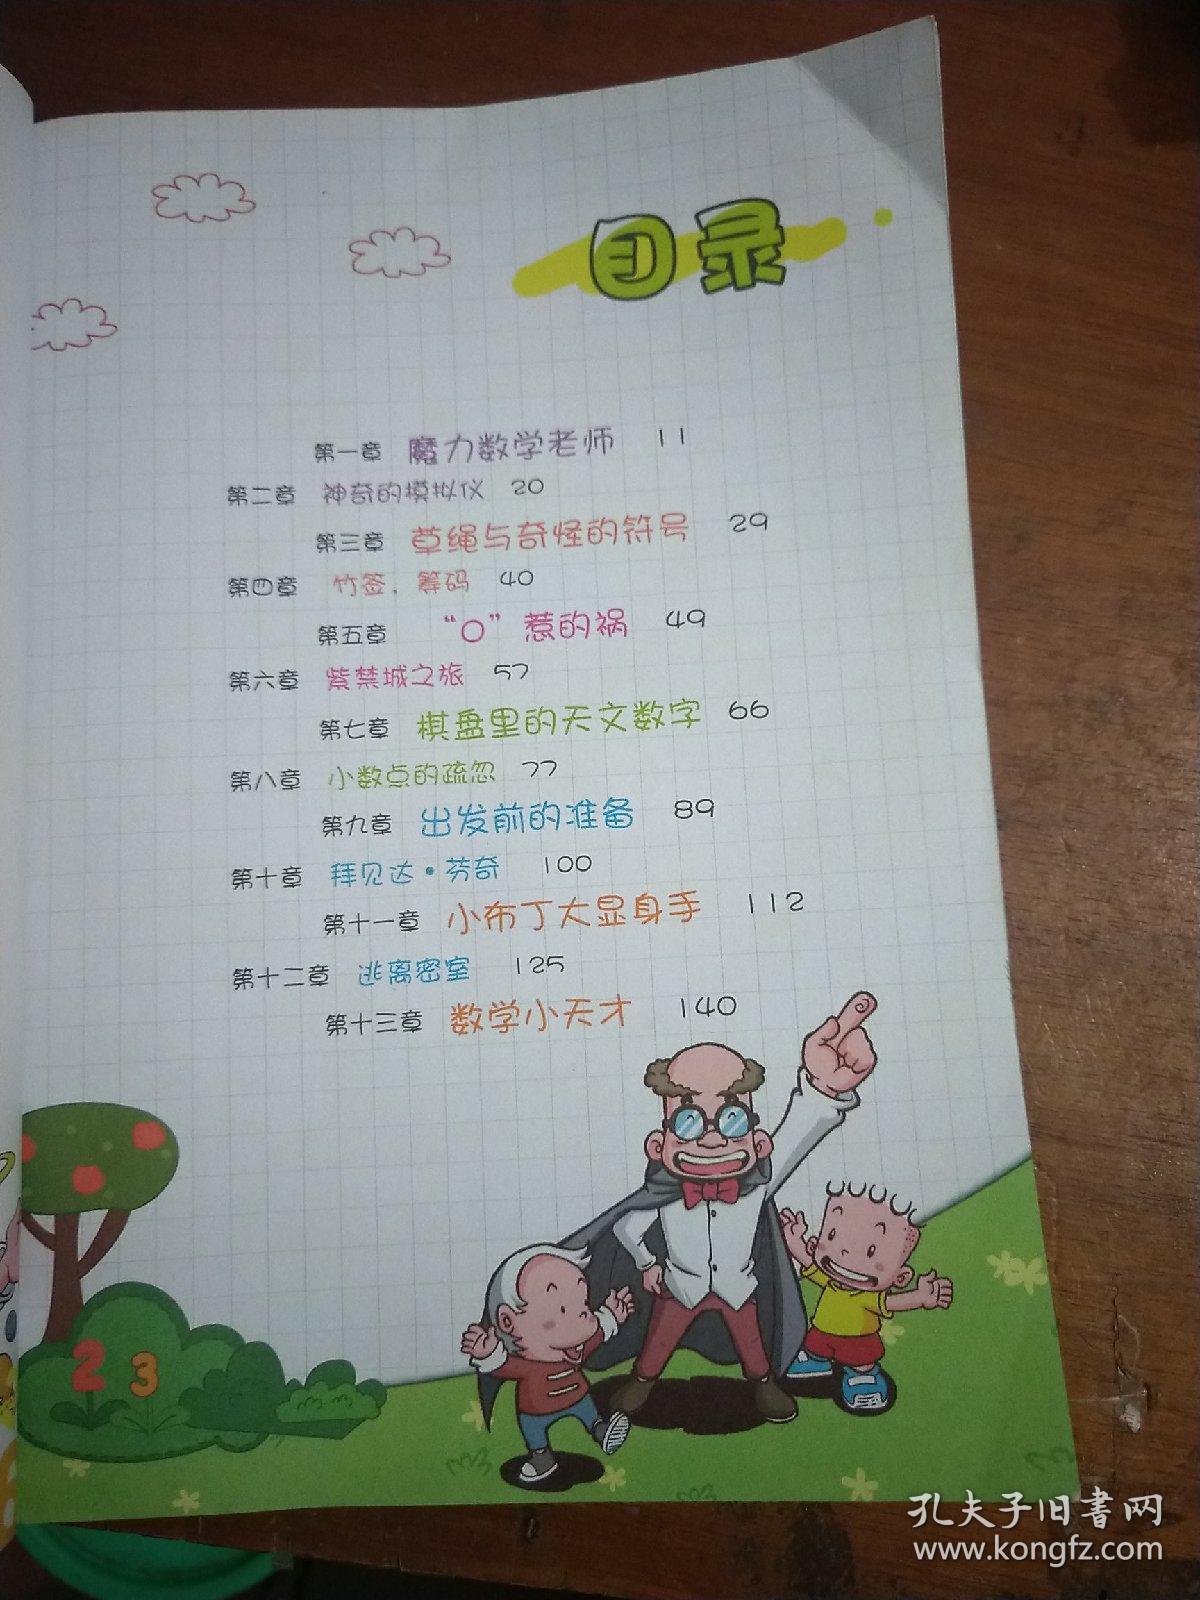 目录
第一章 魔力数学老师 11
第二章 神奇的模拟仪 20
第三章 草绳与奇怪的符号 29
第四章 竹签，筹码 40
第五章 “0”惹的祸 49
第六章 紫禁城之旅 57
第七章 棋盘里的天文数字 66
第八章 小数点的疏忽 77
第九章 出发前的准备 89
第十章 拜见达·芬奇 100
第十一章 小布丁大显身手 112
第十二章 逃离密室 125
第十三章 数学小天才 140
2 3
孔夫子旧书网
www.kongfz.com